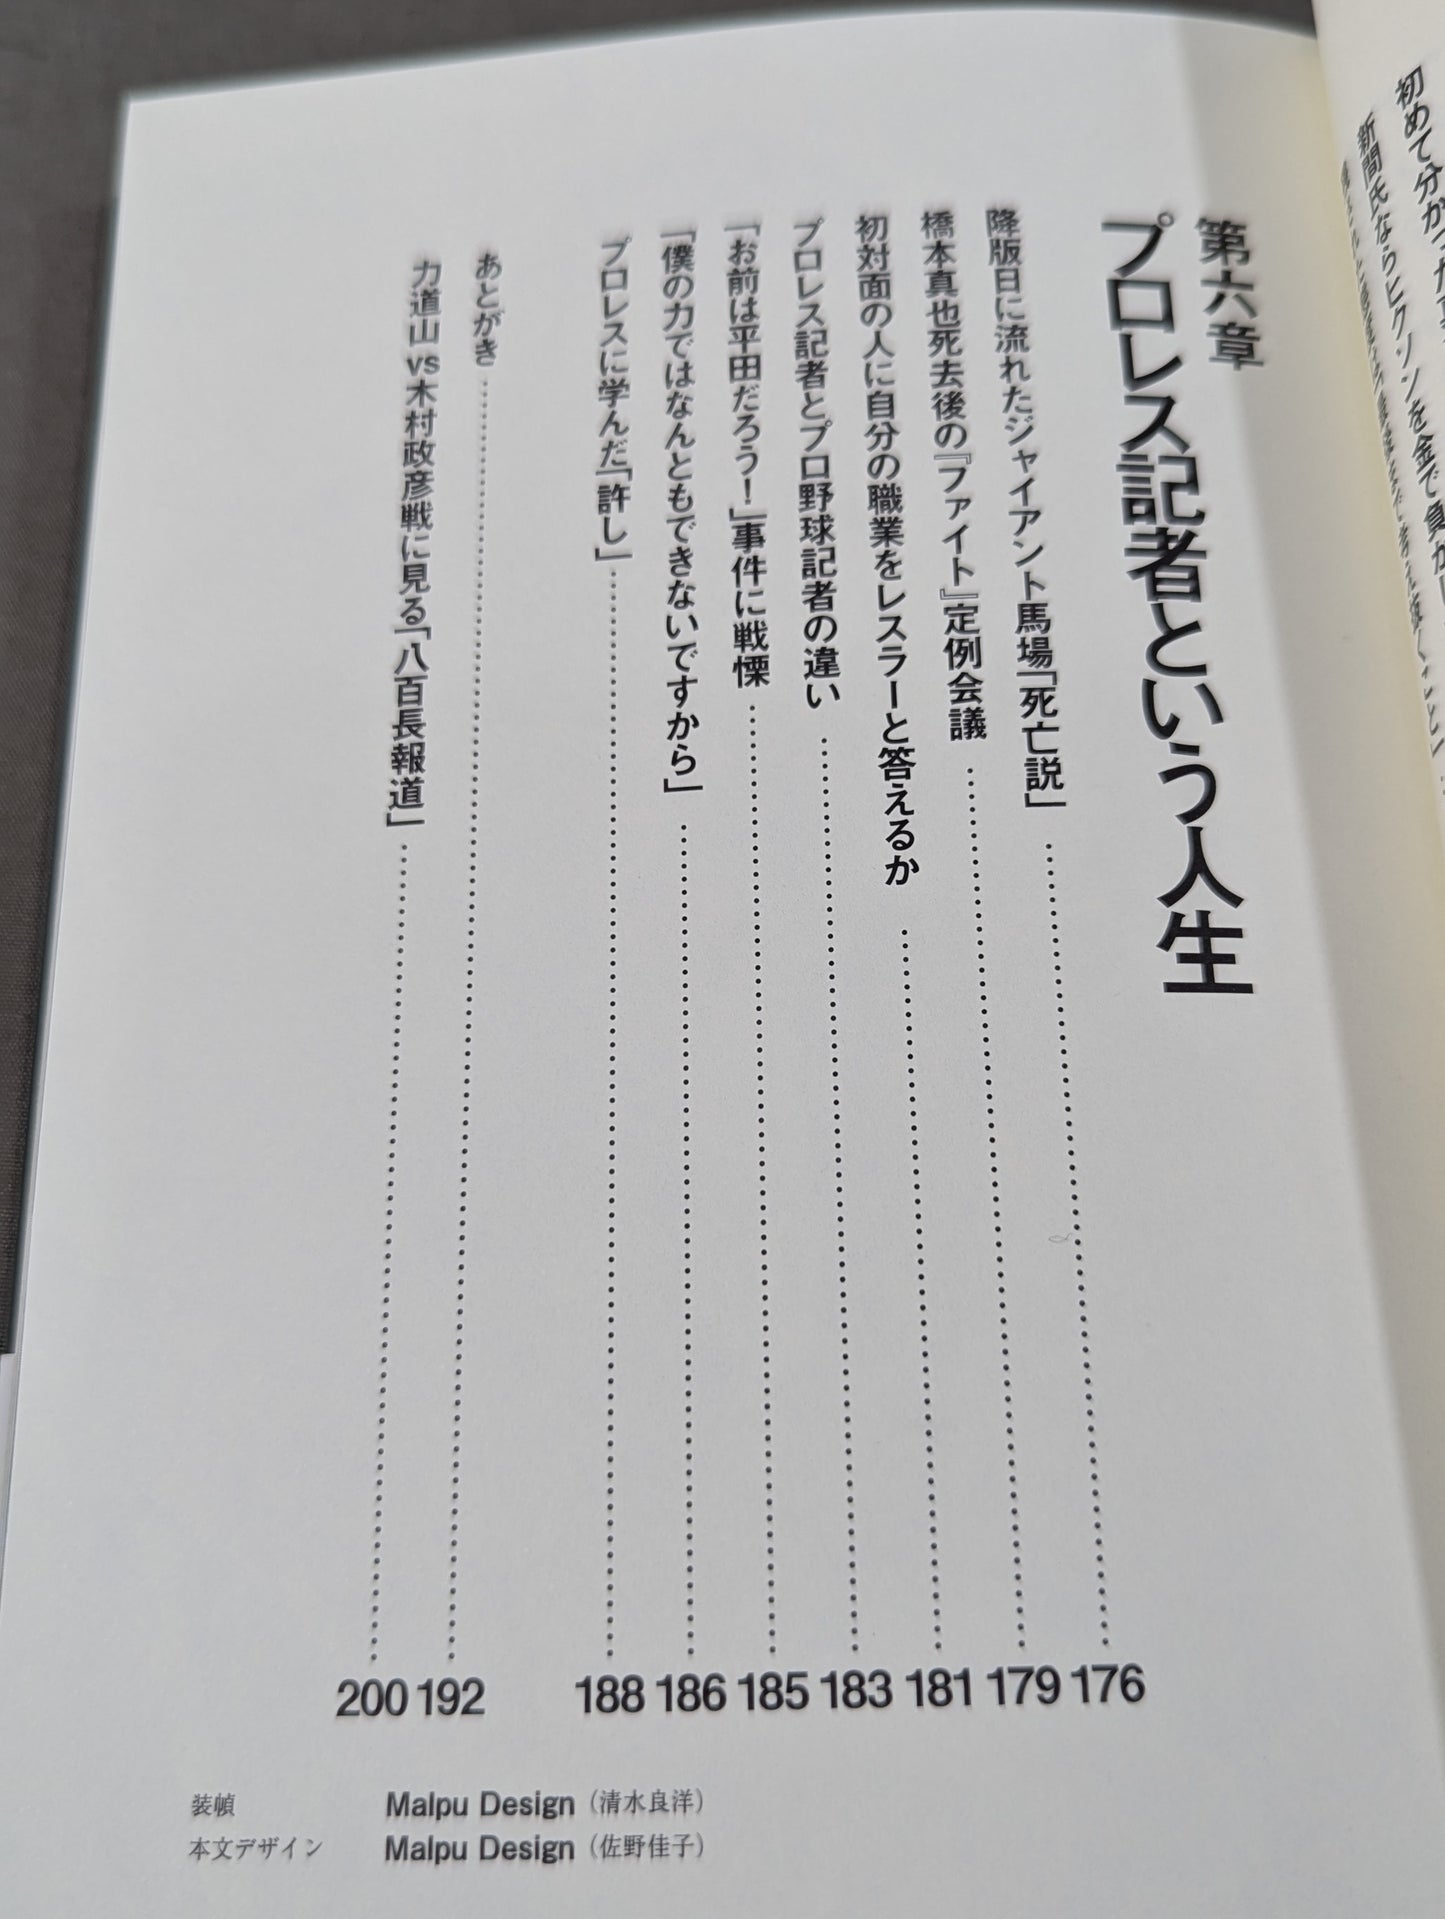 初めて分かった
新間氏ならヒクソンを金で負か
第六章
プロレス記者という人生
降版日に流れたジャイアント馬場「死亡説」 176
橋本真也死去後の『ファイト』定例会議 179
初対面の人に自分の職業をレスラーと答えるか 181
プロレス記者とプロ野球記者の違い 183
「お前は平田だろう！」事件に戦慄 185
「僕の力ではなんともできないですから」 186
プロレスに学んだ「許し」 188
あとがき 192
力道山vs木村政彦戦に見る「八百長報道」 200
装幀 Malpu Design（清水良洋）
本文デザイン Malpu Design（佐野佳子）